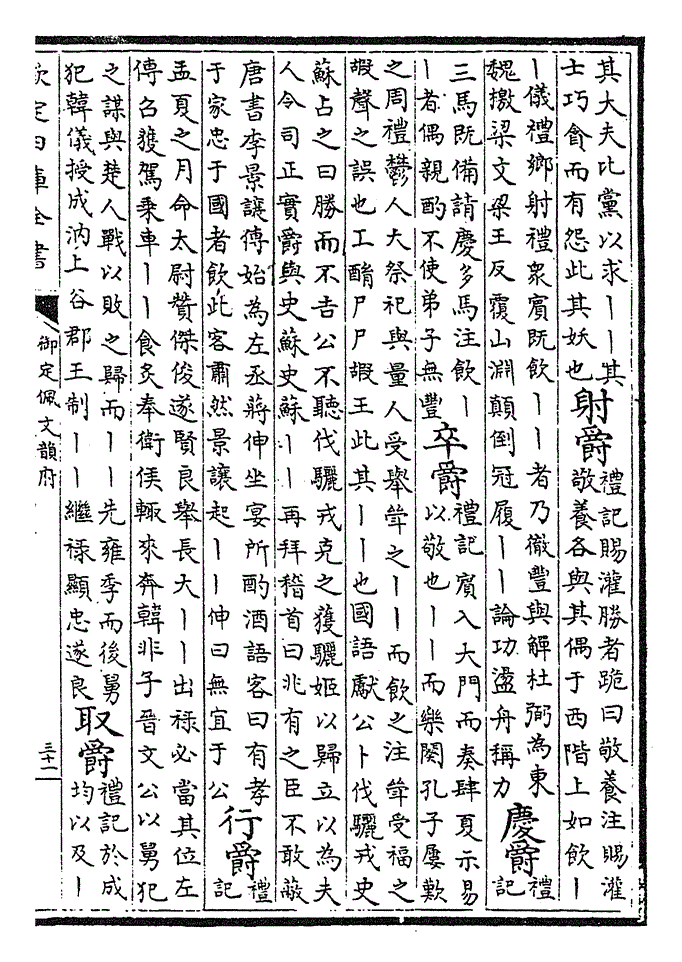 其大夫比黨以求丨丨其
士巧貪而有怨此其妖也
射爵
禮記賜灌勝者跪曰敬養注賜灌
敬養各與其偶于西階上如飲丨
丨儀禮鄉射禮衆賓既飲丨丨者乃徹豐與觶杜弼為東
魏撽梁文梁王反覆山淵顛倒冠履丨丨論功盪舟稱力
慶爵
禮
記
三馬既備請慶多馬注飲丨
丨者偶親酌不使弟子無豐
卒爵
禮記賓入大門而奏肆夏示易
以敬也丨丨而樂闋孔子屢歎
之周禮鬱人大祭祀與量人受舉斝之丨丨而飲之注斝受福之
嘏聲之誤也工酳尸尸嘏王此其丨丨也國語獻公卜伐驪戎史
蘇占之曰勝而不吉公不聽伐驪戎克之獲驪姬以歸立以為夫
人令司正實爵與史蘇史蘇丨丨再拜稽首曰兆有之臣不敢蔽
唐書李景讓傳始為左丞蔣伸坐宴所酌酒語客曰有孝
于家忠于國者飲此客肅然景讓起丨丨伸曰無宜于公
行爵
禮
記
孟夏之月命太尉贊傑俊遂賢良舉長大丨丨出禄必當其位左
傳召獲駕乘車丨丨食炙奉衛侯輙來奔韓非子晉文公以舅犯
之謀與楚人戰以敗之歸而丨丨先雍季而後舅
犯韓儀授成汭上谷郡王制丨丨繼禄顯忠遂良
取爵
禮記於成
均以及丨
欽定四庫全書
御定佩文韻府
三十一